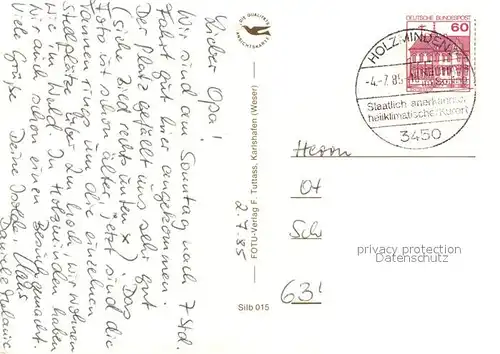 Lieber Opa!
Wir sind am Sonntag nach 7 Std.
Fahrt gut hier angekommen.
Der Platz gefällt uns sehr gut
(siehe Bild rechts unten x). Das
Foto ist schon älter, jetzt sind die
Tannen rings um die einzelnen
Stellplätze über 2m hoch, wir wohnen
wie im Wald. In Holzminden haben
wir auch schon einen Besuch gemacht.
Viele Grüße Deine Isolde, Hans
Daniela Melanie
2.7.85
DIE QUALITÄTS
ANSICHTSKARTE
FOTU-Verlag F. Tuttass, Karlshafen (Weser)
Silb 015
DEUTSCHE BUNDESPOST
60
HOLZMINDEN
-4.-7.85
Staatlich anerkannter
heilklimatischer Kurort
3450
Herrn
Ot
Sch
privacy protection
www.ansichtskartenversand.com
63